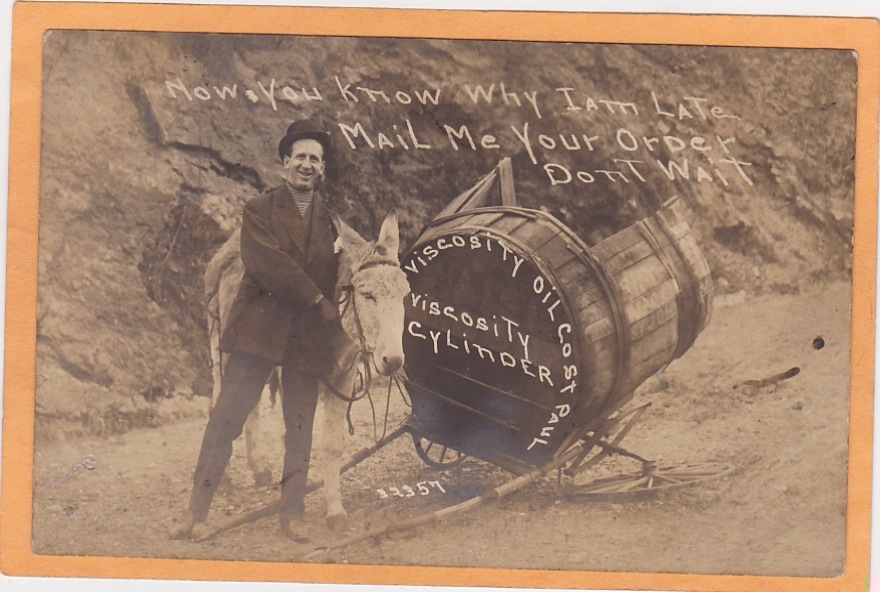 Now you know why I am Late
Mail Me Your Order
Dont Wait
Viscosity Oil Co St Paul
Viscosity
Cylinder
33357